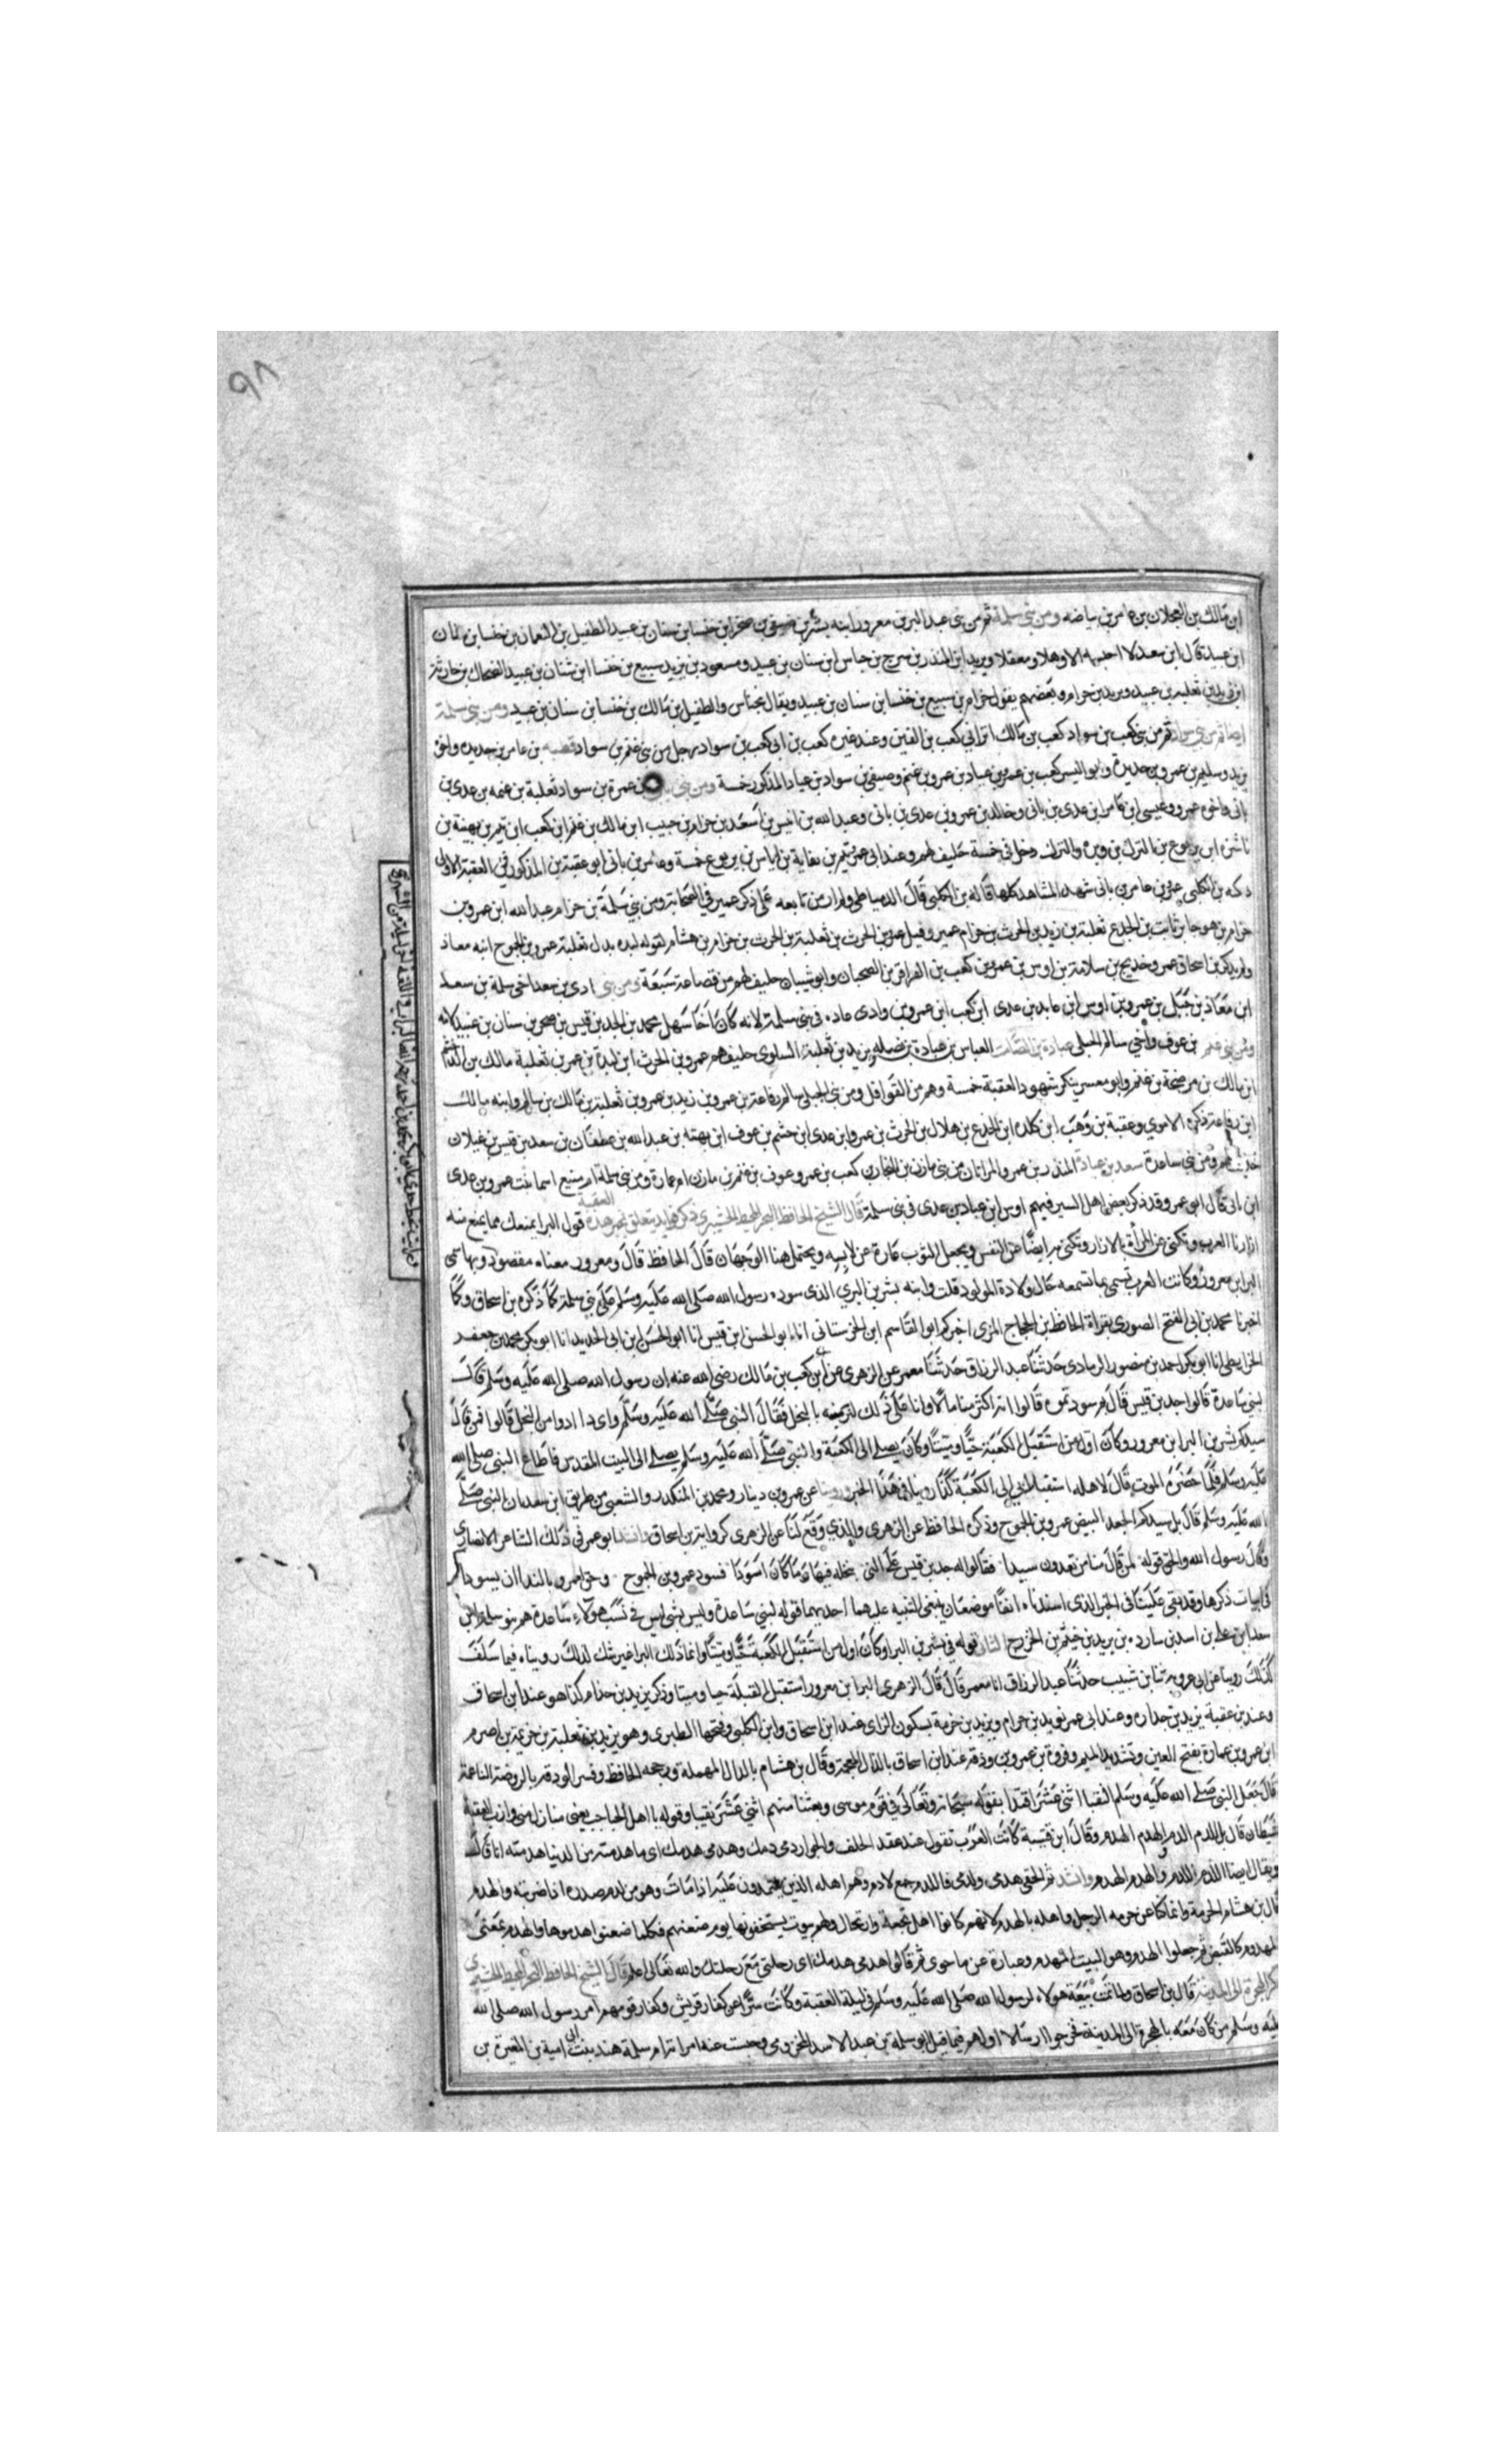 ٩٨
ابن مالك بن العجلان بن عامر بن بياضه ومن بني سلمة ثم من بني عبد البر بن معرور وابنه بشر بن صيفي بن صخر ابن خنسا بن سنان بن عبيد الطفيل بن النعمان بن خنسا بن سنان
ابن عبيد قال ابن سعد لا احسبه الا وهلا ومعقلا ويزيد ابن المنذر بن سرح بن خناس ابن سنان بن عبيد ومسعود بن يزيد سبيع بن خنسا ابن سنان بن عبيد الضحاك بن حارثة
ابن زيد بن ثعلبه بن عبيد ويزيد بن حرام وبعضهم يقول حرام بن سبيع بن خنسا بن سنان بن عبيد ويقال بخناس والطفيل بن مالك بن خنسا بن سنان بن عبيد ومن بني سلمة
ايضا ثم من بني سواد ثم من بني كعب بن سواد كعب بن مالك ابن ابي كعب بن القين وعند غيره كعب بن ابي كعب بن سواد رجل من بني غنم بن سواد قطبه بن عامر بن حديده واخوه
يزيد وسليم بن عمرو بن حديدة وابو اليسر كعب بن عمرو بن عباد بن عمرو بن غنم وصيفي بن سواد بن عباد المذكور خمسة ومن بني بن عمرة بن سواد ثعلبة بن غنمه بن عدي بن
نابي واخوه عمرو وعبسى ابن عامر ابن عدي بن نابي وخالد بن عمرو بن عدي بن نابي وعبد الله بن انيس بن اسعد بن حرام بن حبيب ابن مالك بن غنم ابن كعب ابن تيم بن بهثة بن
ناشزه ابن يربوع بن البرك بن وبره والبرك دخل في خمسة حليف لهم وعند ابي عمر تيم بن نفاثة بن اياس بن يربوع خمسة وعامر بن نابي ابو عقبة بن المذكور في العقبة الاولى
ذكره بن الكلبي عمرو بن عامر بن نابي شهد المشاهد كلها قاله بن الكلبي قال الدمياطي ولم ار من تابعه على ذكر عمير في الصحابة ومن بني سلمة بن حرام عبد الله ابن عمرو بن
حرام بن هو جابر ثابت بن الجدع ثعلبة بن زيد بن الحرث بن حرام عمير وقيل عمرو بن الحرث بن ثعلبة بن الحرث بن حرام بن هشام لقوله لبده بدل ثعلبة عمرو بن الجموح ابنه معاذ
ولم يذكر بن اسحاق عمرو خديج بن سلامة بن اوس بن عمرو بن كعب بن القراقر بن الضحيان وابو شيبان حليف لهم من قضاعة سبعة ومن بني ادي بن سعد اخي سلمة بن سعد
ابن معاذ بن جبل بن عمرو بن اوس ابن عايد بن عدي ابن كعب ابن عمرو بن وادي عاده في بني سلمة لانه كان اخا سهل محمد بن الجد بن قيس بن صخر بن سنان بن عبيد لامه
ومن بني غنم بن عوف واخي سالم الحبلى عبادة بن الصامت العباس بن عبادة بن نضله ويزيد بن ثعلبة السلوى حليف هم عمرو بن الحرث ابن لبدة بن عمر بن ثعلبة مالك بن الدخشم
ابن مالك بن مرضخة بن غنم وابو معسر ينكر شهود العقبة خمسة وهم من القواقل ومن بني الحبلي سالم رفاعة بن عمرو بن زيد بن عمرو بن ثعلبة بن مالك بن سالم وابنه مالك
ابن رفاعة ذكره الاموي وعقبة بن وهب ابن كلده ابن الجدع بن هلال بن الحرث بن عمرو ابن عدي ابن جشم بن عوف ابن بهثه بن عبد الله بن غطفان بن سعد بن قيس بن عيلان
ومن بني ساعدة سعد بن عبادة المنذر بن عمرو والمراتان من بني مازن بن النجار بن كعب بن عمرو وعوف بن غنم بن مازن ام عمارة ومن بني سلمة ام منيع اسما بنت عمرو بن عدي
ابن نابي قال ابو عمر وقد ذكر بعض اهل السير فيهم اوس ابن عباد بن عدي في بني سلمة قال الشيخ الحافظ البحر المحيط ذكر فوايد تتعلق بخبر هذه العقبة قول البرا نمنعك مما يمنع منه
ازارنا العرب وتكني عن المرأة بالازار وتكني به ايضا عن النفس ويجعل الثوب عبارة عن لابسه ويحتمل هنا الوجهان قال الحافظ قال ومعرور معناه مقصود وبها سمي
البرا بن معرور وكانت العرب تسمي بما تسمعه حال ولادة المولود قلت وابنه بشر بن البري الذي سوده رسول الله صلى الله عليه وسلم على بني سلمة كما ذكره بن اسحاق وكما
اخبرنا محمد بن ابي الفتح الصوري بقراة الحافظ بن الحجاج المزي اخبركم ابو القاسم ابن الحرستاني انا ابو الحسن ابن قيس انا ابو الحسن ابن ابي الحديد انا ابو بكر محمد بن جعفر
الخرايطي انا ابو بكر احمد بن منصور الرمادي حدثنا عبد الرزاق حدثنا معمر عن الزهري عن ابن كعب بن مالك رضي الله عنه ان رسول الله صلى الله عليه وسلم قال
لبني ساعدة قالوا جد بن قيس قال بم سودتموه قالوا انه اكثر منا مالا وانا على ذلك لنزنه بالبخل فقال النبي صلى الله عليه وسلم واي داء ادوا من البخل قالوا فمن قال
سيدكم بشر بن البرا بن معرور وكان اول من استقبل الكعبة حيا وميتا وكان يصلي الى الكعبة والنبي صلى الله عليه وسلم يصلي الى البيت المقدس فاطاع النبي صلى الله
عليه وسلم فلما حضره الموت قال لاهله استقبلوا بي الى الكعبة كذا روينا في هذا الخبر وروينا عن عمرو بن دينار ومحمد بن المنكدر والشعبي من طريق ابن سعد ان النبي صلى
الله عليه وسلم قال بل سيدكم الجعد البيض عمرو بن الجموح وذكره الحافظ عن الزهري والذي وقع لنا عن الزهري كرواية بن اسحاق وانشد ابو عمر في ذلك الشاعر الانصاري
وقال رسول الله والحق قوله لمن قال منا من تعدون سيدا فقالوا له جد بن قيس على التي نبخله فيها وما كان اسودا فسود عمرو بن الجموح وحق لعمرو بالندا ان يسودا
في ابيات ذكرها وقد بقي علينا في الخبر الذي اسندناه انفا موضعان ينبغي التنبيه عليهما احدهما قوله لبني ساعدة وليس بشي ليس في نسب هولاء ساعدة هم بنو سلمة ابن
سعد ابن علي بن اسد بن سارده بن يزيد بن خيثم بن الخزرج الثاني قوله في بشر بن البرا وكان اول من استقبل الكعبة حيا وميتا وانما ذلك البرا غير شك لذلك رويناه فيما سلف
كذلك روينا عن ابي عروبة ثنا بن شبيب حدثنا عبد الرزاق انا معمر قال قال الزهري البرا بن معرور استقبل القبلة حيا وميتا وذكر يزيد بن حذام كذا هو عند ابن اسحاق
وعند بن عقبة يزيد بن حداره وعند ابي عمر يزيد بن حرام ويزيد بن خزمة بسكون الزاي عند ابن اسحاق وابن الكلبي وفتحها الطبري وهو يزيد بن ثعلبة بن خزيمة بن اصرم
ابن عمرو بن عمارة بفتح العين وتشديد الميم وفروة بن عمرو بن وذقة عند ابن اسحاق بالذال المعجمة وقال بن هشام بالدال المهملة ورجحه الحافظ وفسر الودقه بالروضة الناعمة
قال جعل النبي صلى الله عليه وسلم النقبا اثني عشر اقتدا بقوله سبحانه وتعالى في قوم موسى وبعثنا منهم اثني عشر نقيبا وقوله يا اهل الجباجب يعني منازل منى وازب العقبة
شيطان قال بل الدم الدم والهدم الهدم وقال ابن قتيبة كانت العرب تقول عند عقد الحلف والجوار دمي دمك وهدمي هدمك اي ما هدمت من الدنيا هدمته انا قال
ويقال ايضا اللدم اللدم والهدم الهدم وانشد ثم الحقي هدمي ولدمي فاللدم جمع لادم وهم اهله الذين يلتدمون عليه اذا مات وهو من لدم صدره اذا ضربه والهدم
قال بن هشام الحرمة وانما كنا عن حرمه الرجل واهله بالهدم لانهم كانوا اهل نجعة وارتحال ولهم بيوت يستخفونها يوم ضعنهم فكلما ضعنوا هدموها والهدم بمعنى
المهدوم كالقبض ثم جعلوا الهدم وهو البيت المهدوم وعبارة عن ما حوى ثم قالوا هدمي هدمك اي رحلتي مع رحلتك والله تعالى اعلم قال الشيخ الحافظ البحر المحيط
ذكر الهجرة الى المدينة قال بن اسحاق ولما تمت بيعة هولاء لرسول الله صلى الله عليه وسلم في ليلة العقبة وكانت سرا عن كفار قريش وكفار قومهم امر رسول الله صلى الله
عليه وسلم من كان معه بالهجرة الى المدينة فخرجوا ارسالا اولهم فيما قيل ابو سلمة بن عبد الاسد المخزومي وحبست عنه امراته ام سلمة هند بنت ابي امية بن المغيرة بن